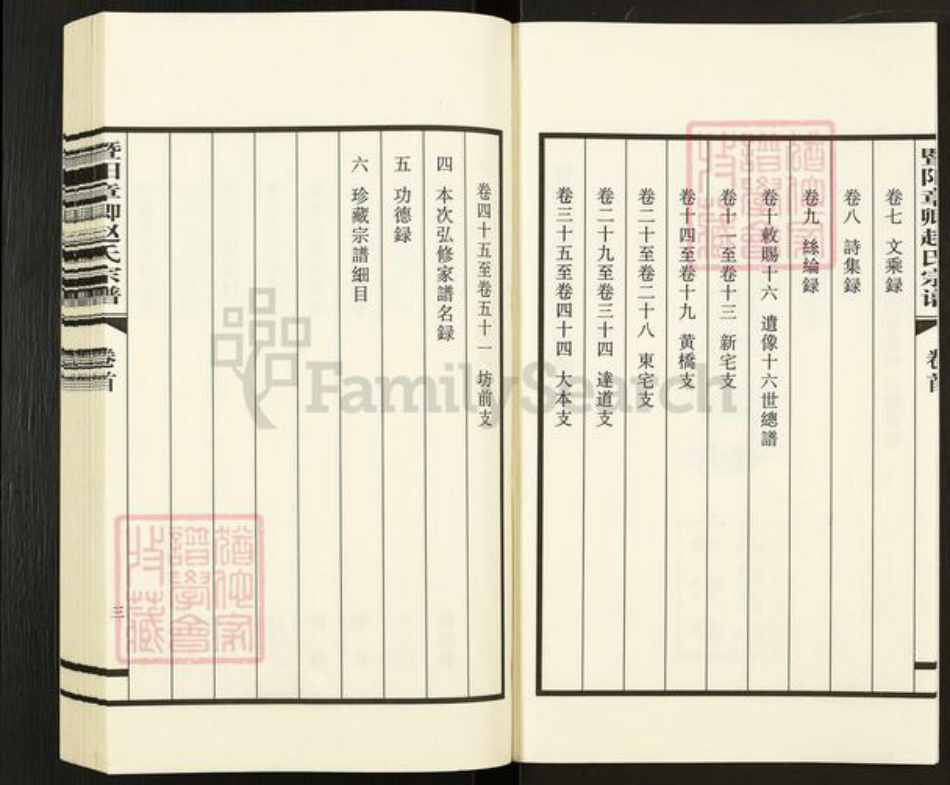 暨陽章卿趙氏宗譜 卷首
卷七 文乘録
卷八 詩集録
卷九 絲綸録
卷十敕賜十六 遺像十六世總譜
卷十一至卷十三 新宅支
卷十四至卷十九 黃橋支
卷二十至卷二十八 東宅支
卷二十九至卷三十四 達道支
卷三十五至卷四十四 大本支
卷四十五至卷五十一 坊前支
四 本次弘修家譜名録
五 功德録
六 珍藏宗譜細目
暨阳章卿赵氏宗谱 卷首
三
猶他家譜學會收藏
猶他家譜學會收藏
FamilySearch